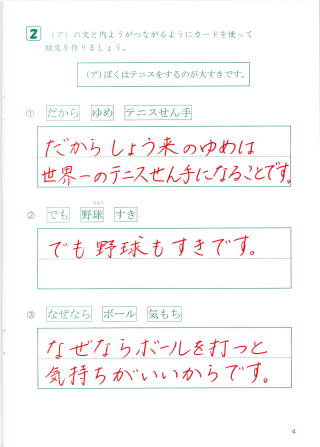 2 （ア）の文と内ようがつながるようにカードを使って
短文を作りましょう。
（ア）ぼくはテニスをするのが大すきです。
① だから ゆめ テニスせん手
だから しょう来のゆめは
世界一のテニスせん手になることです。
② でも 野球 すき
でも 野球もすきです。
③ なぜなら ボール 気もち
なぜなら、ボールを打つと
気持ちがいいからです。
4